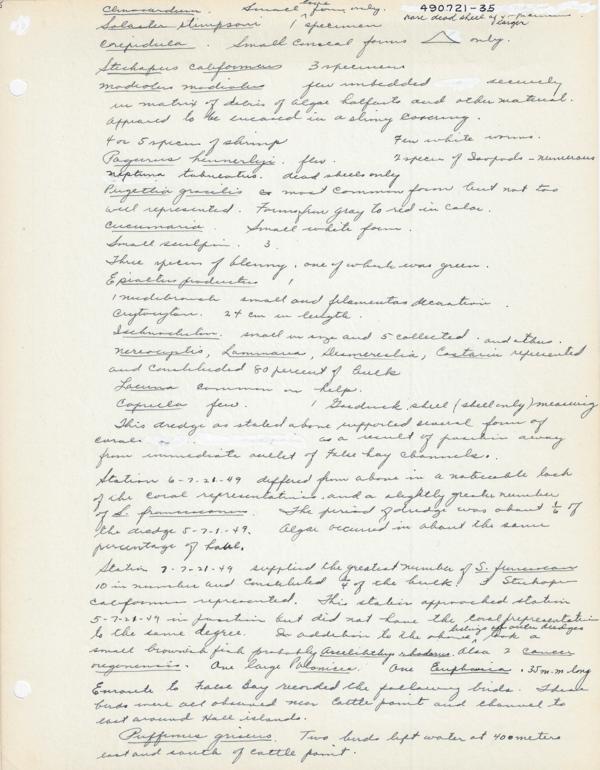 490721-35
Small form only. rare dead shell of larger
Solaster stimpsoni 1 specimen
Crepidula. Small conical forms only.
Stichopus californicus 3 specimens
Modiolus modiolus few imbedded securely
in matrix of debris of algae holdfasts and other material.
appeared to be encased in a slimy covering.
4 or 5 species of shrimp Few white worms.
Pagurus kennerlyi. few. 2 species of Isopods - numerous
Neptunea tabulatus. dead shells only
Pugettia gracilis most common form but not too
well represented. Forms from gray to red in color.
Cucumaria. Small white form.
Small sculpin. 3.
Three species of blenny, one of which was green.
Epialtus productus 1
1 nudibranch small and filamentous decoration.
Cryptochiton. 24 cm in length.
Ischnochiton. small in size and 5 collected. and other.
Nereocystis, Laminaria, Desmerestia, Costaria represented
and constituted 80 percent of bulk
Lacuna common on kelp.
Caprella few. 1 Goeduck shell (shell only) measuring
This dredge as stated above supported several form of
corals as a result of position away
from immediate outlet of False bay channels.
Station 6-7-21-49 differed from above in a noticeable lack
of the coral representatives and a slightly greater number
of S. franciscanus. The period of dredge was about 1/6 of
the dredge 5-7-21-49. Algae occurred in about the same
percentage of haul.
Station 7-7-21-49 supplied the greatest number of S. franciscan
10 in number and constituted of the bulk 3 Stichopus
californicus represented. This station approached station
5-7-21-49 in position but did not have the coral representation
to the same degree. In addition to the above, took a
small brownish fish probably Ascelichthys rhodorus. Also 2 Cancer
oregonensis. One large One Euphausia. 35 m.m long
Enroute to False Bay recorded the following birds. These
birds were all observed near Cattle point and channel to
east around Hall islands.
Puffinus griseus. Two birds left water at 400 meters
east and south of Cattle point.